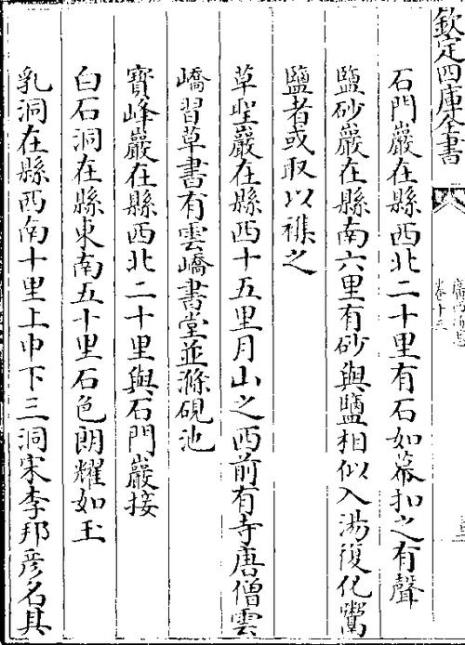 欽定四庫全書
廣西通志
卷十三
石門巖在縣西北二十里有石如幕扣之有聲
鹽砂巖在縣南六里有砂與鹽相似入湯復化鬻
鹽者或取以襍之
草聖巖在縣西十五里月山之西前有寺唐僧雲
嶠習草書有雲嶠書堂並滌硯池
寶峰巖在縣西北二十里與石門巖接
白石洞在縣東南五十里石色朗耀如玉
乳洞在縣西南十里上中下三洞宋李邦彦名具